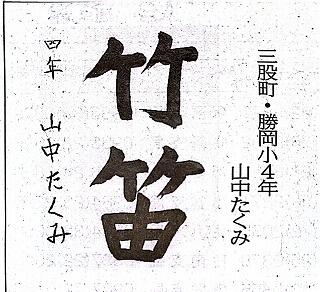 三股町・勝岡小4年
山中たくみ
竹笛
四年 山中たくみ